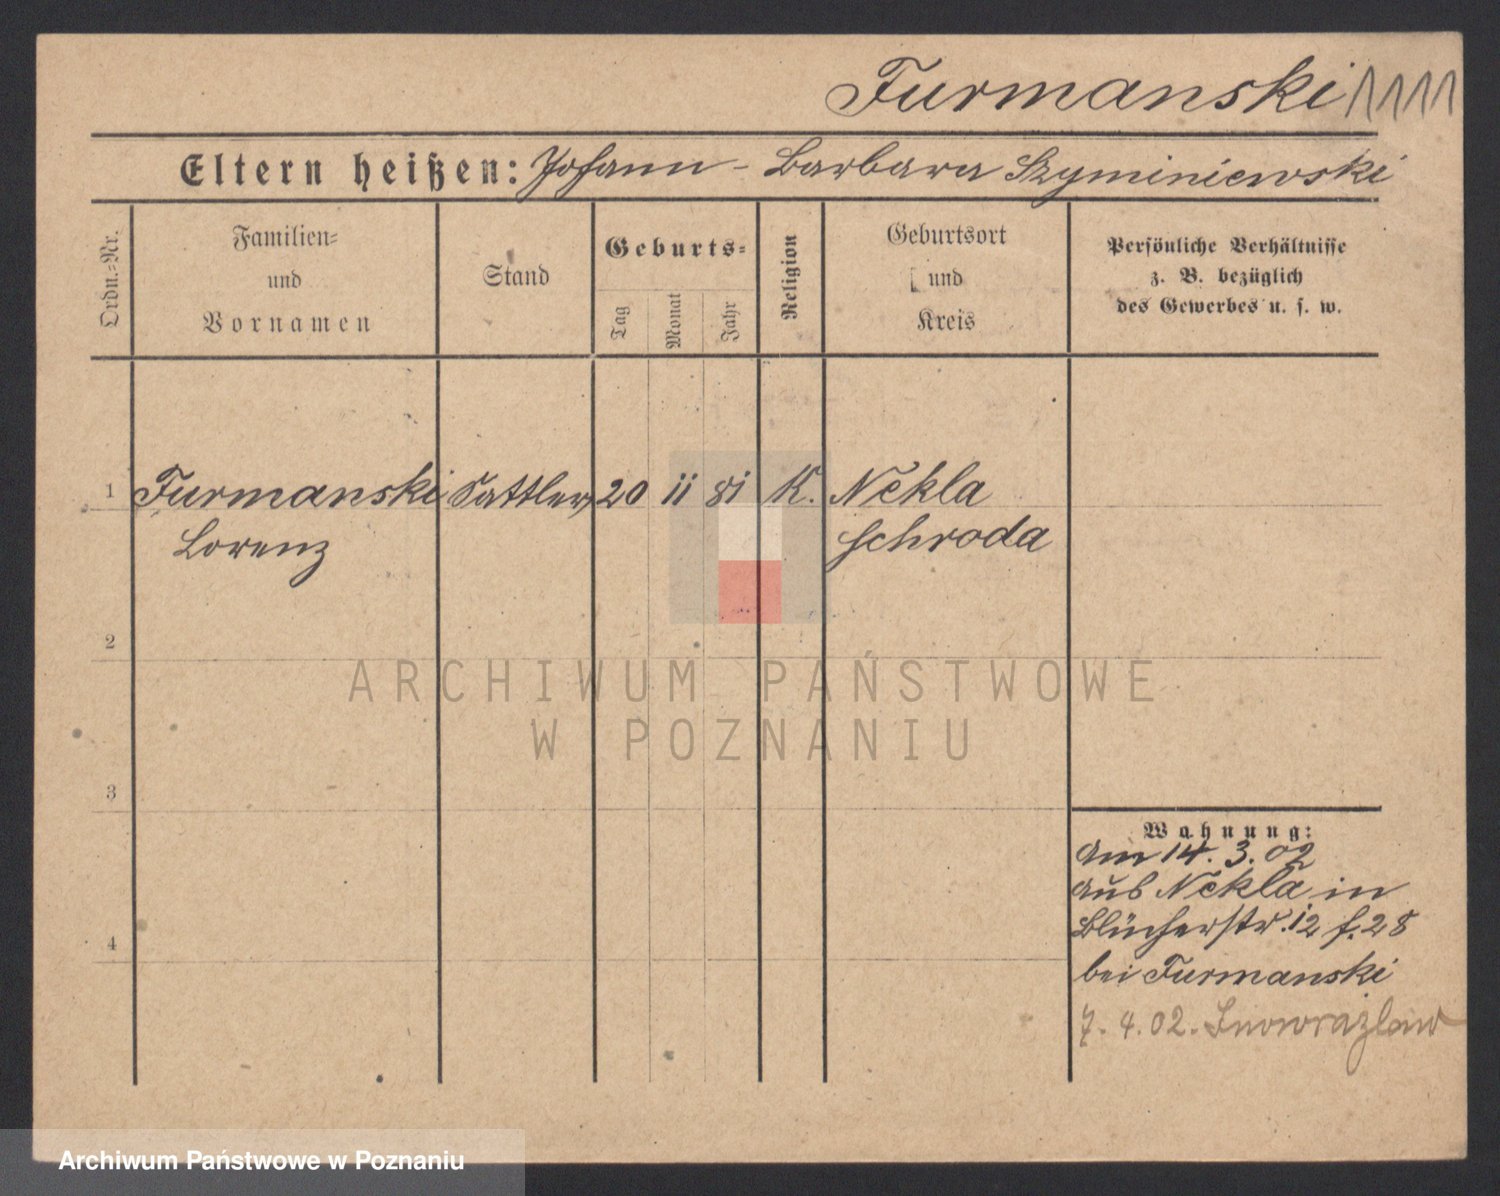 Furmanski
Eltern heißen: Johann - Barbara Szyminiewski
Ordn.=Nr.
Familien=
und
Vornamen
Stand
Geburts=
Tag
Monat
Jahr
Religion
Geburtsort
und
Kreis
Persönliche Verhältnisse
z. B. bezüglich
des Gewerbes u. s. w.
1 Furmanski Sattler 20 11 81 K. Nekla
Lorenz Schroda
2
3
4
Wohnung:
Am 14. 3. 02
aus Nekla in
Blücherstr. 12 f. 28
bei Furmanski
7. 4. 02. Inowrazlaw
ARCHIWUM PAŃSTWOWE
W POZNANIU
Archiwum Państwowe w Poznaniu